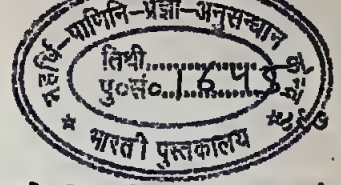 महर्षि-पाणिनि-प्रज्ञा-अनुसन्धान
तिथी..............
पु०सं०.1698......
भारती पुस्तकालय